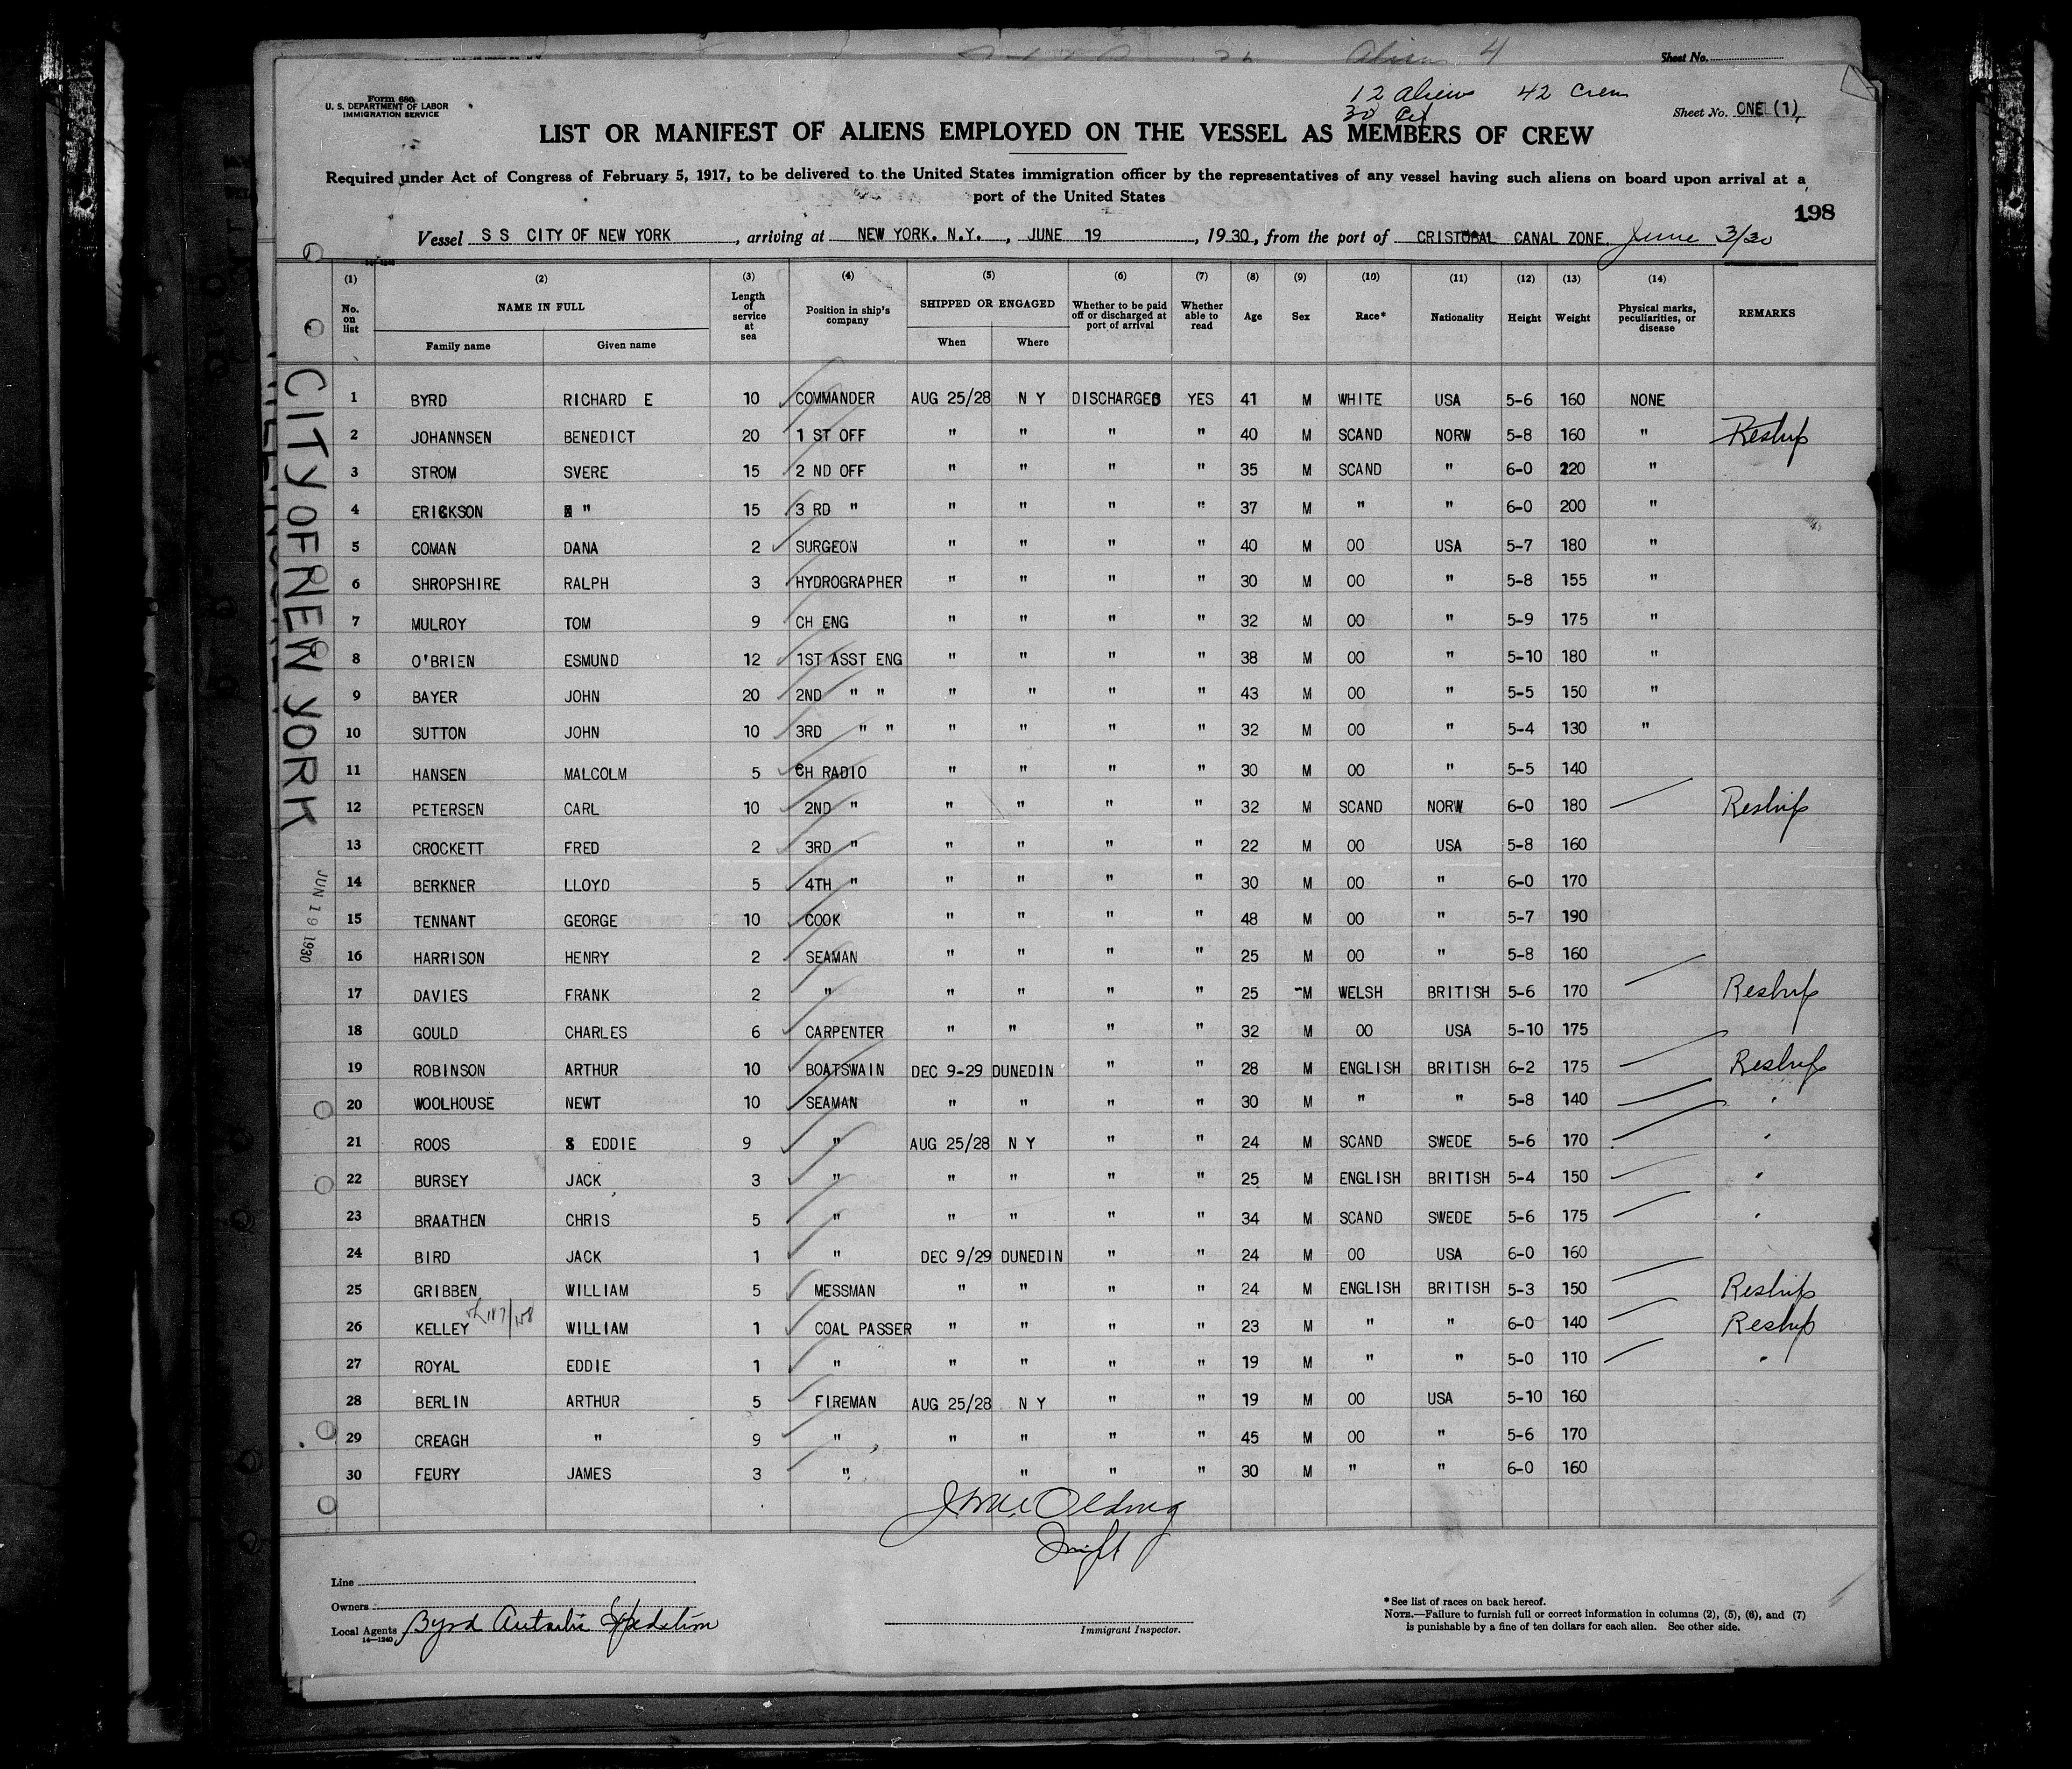 Alien 4
Sheet No.
Form 680
U. S. DEPARTMENT OF LABOR
IMMIGRATION SERVICE
12 aliens 42 crew
30 Cit
Sheet No. ONE (1)
LIST OR MANIFEST OF ALIENS EMPLOYED ON THE VESSEL AS MEMBERS OF CREW
Required under Act of Congress of February 5, 1917, to be delivered to the United States immigration officer by the representatives of any vessel having such aliens on board upon arrival at a
port of the United States
198
Vessel S S CITY OF NEW YORK, arriving at NEW YORK. N.Y., JUNE 19, 1930, from the port of CRISTOBAL CANAL ZONE. June 3/30
(1) (2) (3) (4) (5) (6) (7) (8) (9) (10) (11) (12) (13) (14)
No. on list NAME IN FULL Family name Given name Length of service at sea Position in ship's company SHIPPED OR ENGAGED When Where Whether to be paid off or discharged at port of arrival Whether able to read Age Sex Race* Nationality Height Weight Physical marks, peculiarities, or disease REMARKS
1 BYRD RICHARD E 10 COMMANDER AUG 25/28 N Y DISCHARGED YES 41 M WHITE USA 5-6 160 NONE
2 JOHANNSEN BENEDICT 20 1 ST OFF " " " " 40 M SCAND NORW 5-8 160 " Reship
3 STROM SVERE 15 2 ND OFF " " " " 35 M SCAND " 6-0 220 "
4 ERICKSON " 15 3 RD " " " " " 37 M " " 6-0 200 "
5 COMAN DANA 2 SURGEON " " " " 40 M OO USA 5-7 180 "
6 SHROPSHIRE RALPH 3 HYDROGRAPHER " " " " 30 M OO " 5-8 155 "
7 MULROY TOM 9 CH ENG " " " " 32 M OO " 5-9 175 "
8 O'BRIEN ESMUND 12 1ST ASST ENG " " " " 38 M OO " 5-10 180 "
9 BAYER JOHN 20 2ND " " " " " " 43 M OO " 5-5 150 "
10 SUTTON JOHN 10 3RD " " " " " " 32 M OO " 5-4 130 "
11 HANSEN MALCOLM 5 CH RADIO " " " " 30 M OO " 5-5 140
12 PETERSEN CARL 10 2ND " " " " " 32 M SCAND NORW 6-0 180 Reship
13 CROCKETT FRED 2 3RD " " " " " 22 M OO USA 5-8 160
14 BERKNER LLOYD 5 4TH " " " " " 30 M OO " 6-0 170
15 TENNANT GEORGE 10 COOK " " " " 48 M OO " 5-7 190
16 HARRISON HENRY 2 SEAMAN " " " " 25 M OO " 5-8 160
17 DAVIES FRANK 2 " " " " " 25 M WELSH BRITISH 5-6 170 Reship
18 GOULD CHARLES 6 CARPENTER " " " " 32 M OO USA 5-10 175
19 ROBINSON ARTHUR 10 BOATSWAIN DEC 9-29 DUNEDIN " " 28 M ENGLISH BRITISH 6-2 175 Reship
20 WOOLHOUSE NEWT 10 SEAMAN " " " " 30 M " " 5-8 140 "
21 ROOS EDDIE 9 " AUG 25/28 N Y " " 24 M SCAND SWEDE 5-6 170 "
22 BURSEY JACK 3 " " " " " 25 M ENGLISH BRITISH 5-4 150 "
23 BRAATHEN CHRIS 5 " " " " " 34 M SCAND SWEDE 5-6 175 "
24 BIRD JACK 1 " DEC 9/29 DUNEDIN " " 24 M OO USA 6-0 160
25 GRIBBEN WILLIAM 5 MESSMAN " " " " 24 M ENGLISH BRITISH 5-3 150 Reship
26 KELLEY WILLIAM 1 COAL PASSER " " " " 23 M " " 6-0 140 Reship
27 ROYAL EDDIE 1 " " " " " 19 M " " 5-0 110 "
28 BERLIN ARTHUR 5 FIREMAN AUG 25/28 N Y " " 19 M OO USA 5-10 160
29 CREAGH " 9 " " " " " 45 M OO " 5-6 170
30 FEURY JAMES 3 " " " " 30 M " " 6-0 160
CITY OF NEW YORK
JUN 19 1930
Line
Owners
Local Agents Byrd Antarctic Expedition
14—1240
Immigrant Inspector.
*See list of races on back hereof.
NOTE.—Failure to furnish full or correct information in columns (2), (5), (6), and (7)
is punishable by a fine of ten dollars for each alien. See other side.